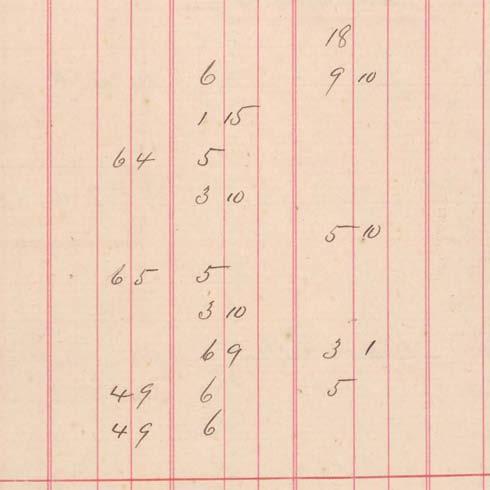 18
6 9 10
1 15
6 4 5
3 10
5 10
6 5 5
3 10
6 9 3 1
4 9 6 5
4 9 6